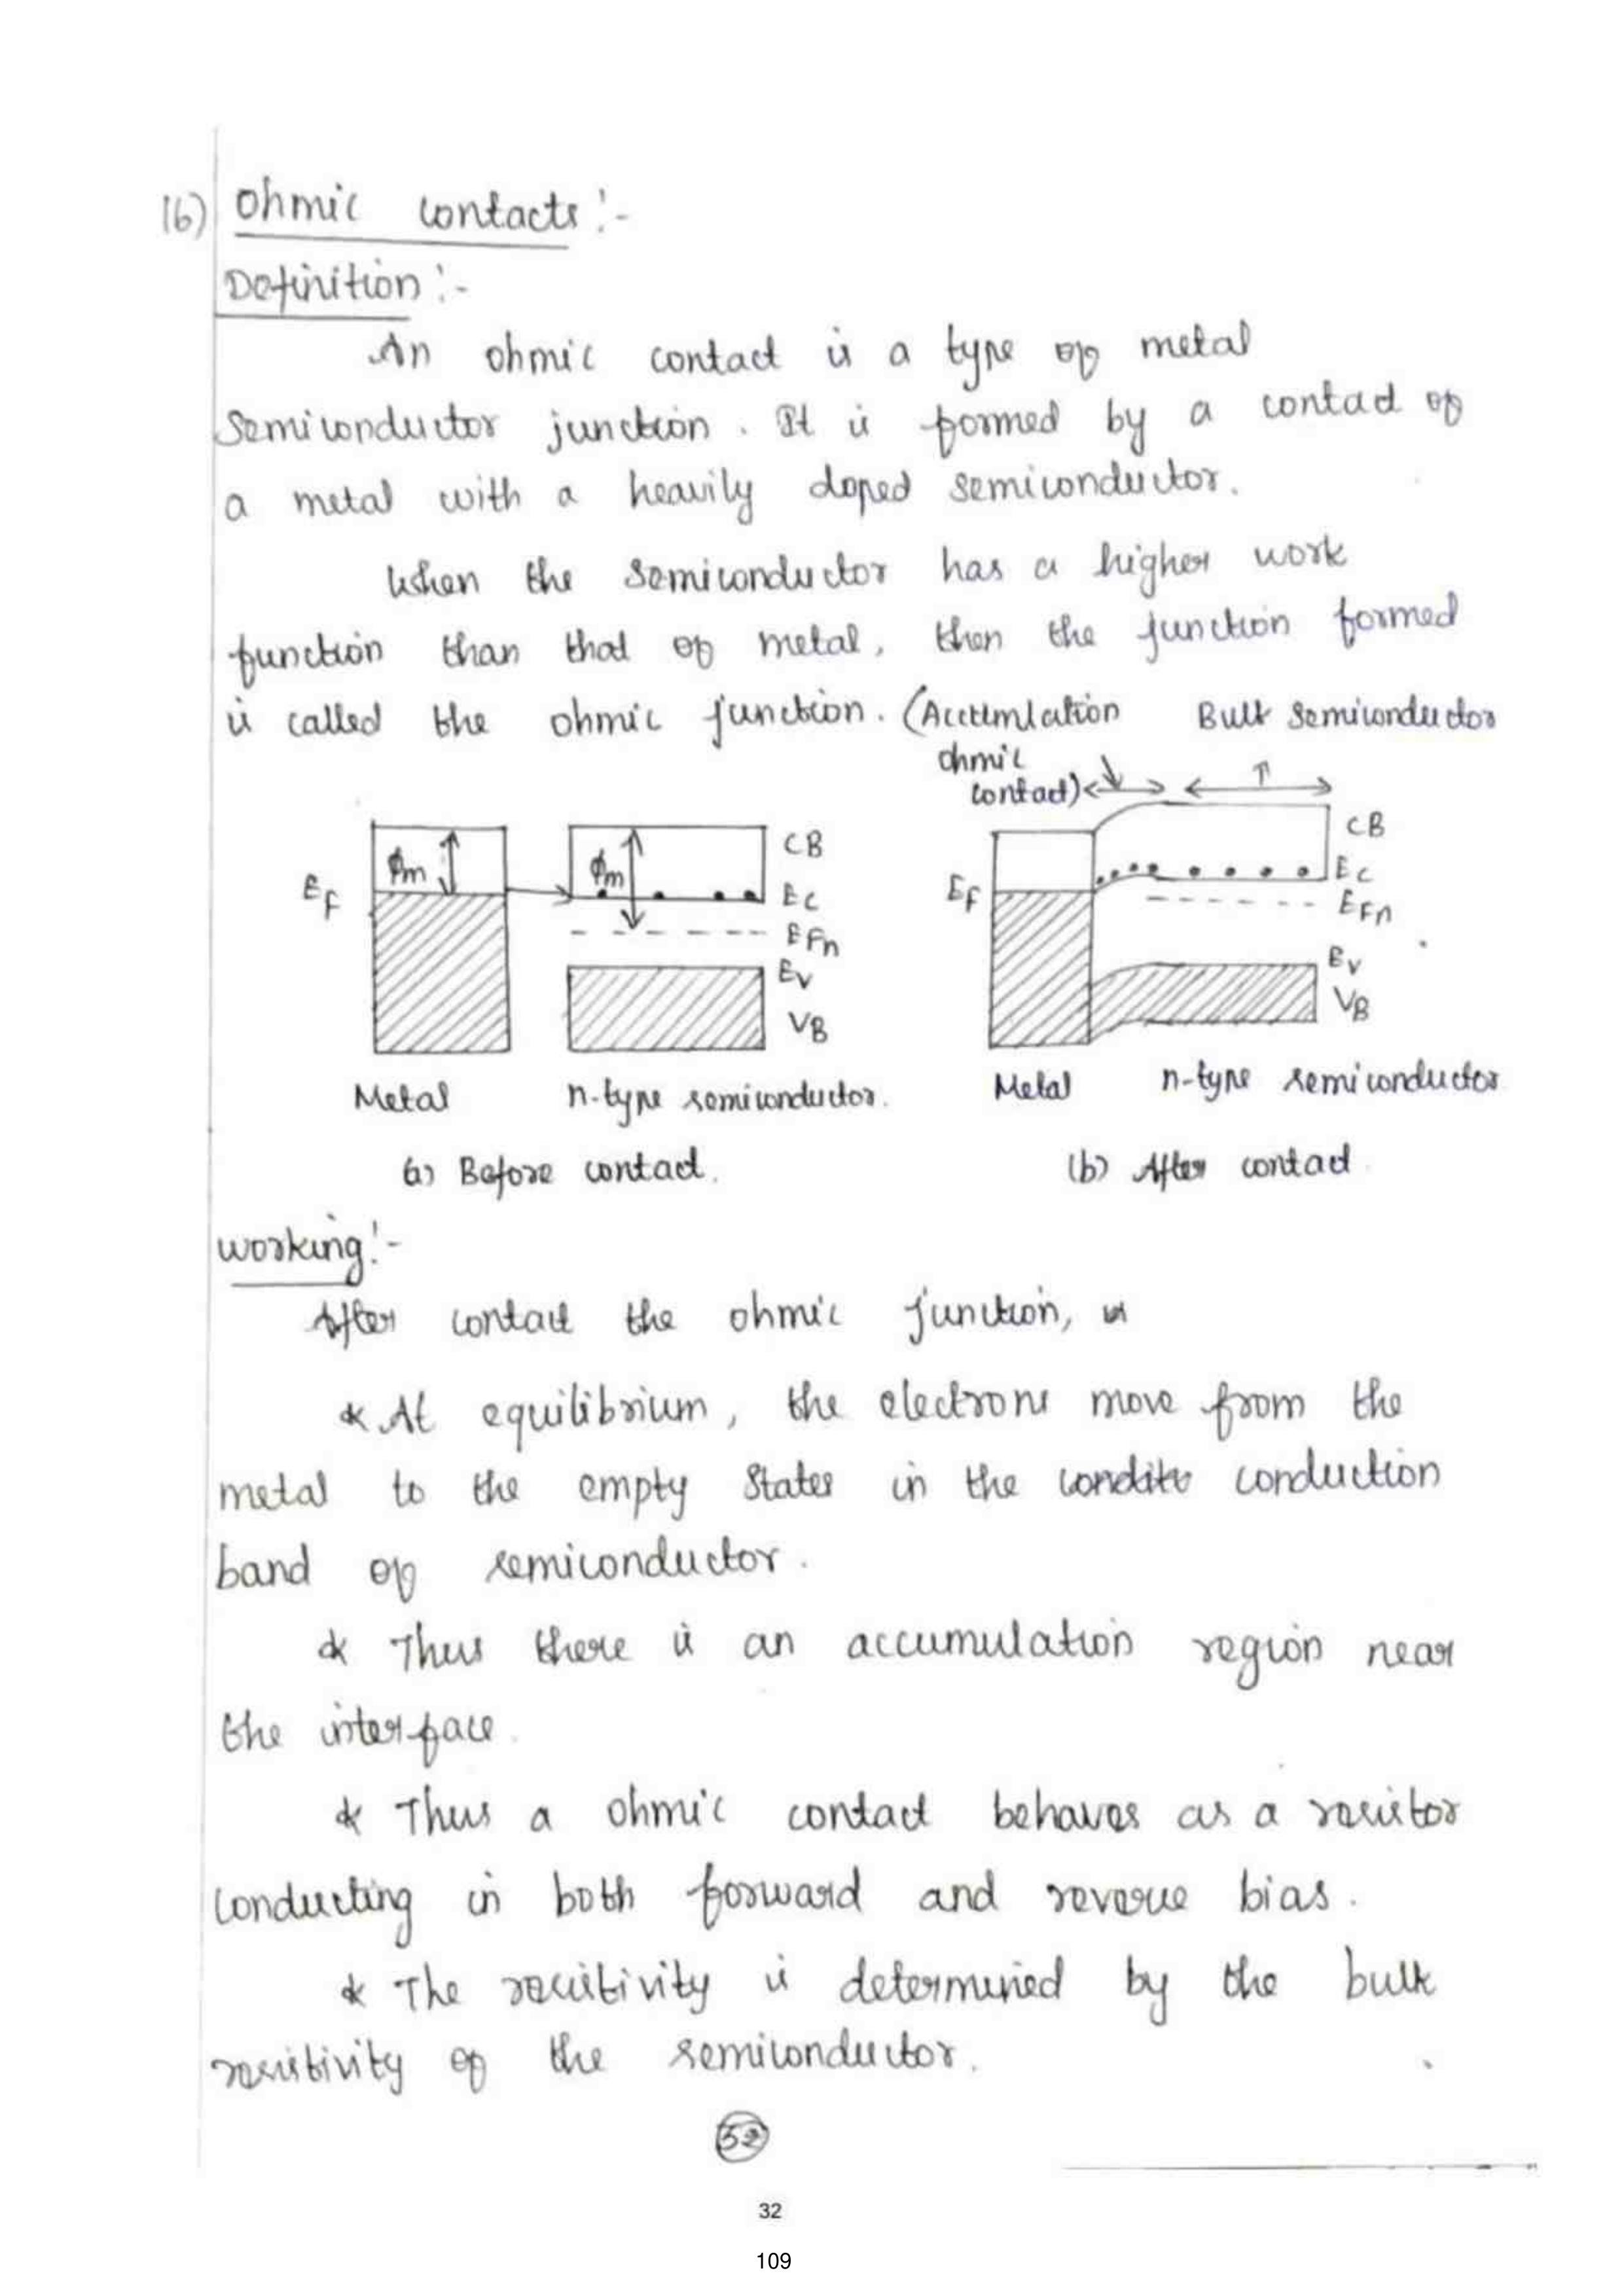 16) Ohmic contacts :-
Definition :-
An ohmic contact is a type of metal
semiconductor junction. It is formed by a contact of
a metal with a heavily doped semiconductor.
When the semiconductor has a higher work
function than that of metal, then the junction formed
is called the ohmic junction. (Accumlation Bulk semiconductor
ohmic
contact)
CB
EF
ϕm
ϕm
EC
EFn
EV
VB
CB
EF
EC
EFn
EV
VB
Metal n-type semiconductor.
Metal n-type semiconductor
(a) Before contact.
(b) After contact
Working :-
After contact the ohmic junction,
* At equilibrium, the electrons move from the
metal to the empty states in the condito conduction
band of semiconductor.
* Thus there is an accumulation region near
the interface.
* Thus a ohmic contact behaves as a resistor
conducting in both forward and reverse bias.
* The resistivity is determined by the bulk
resistivity of the semiconductor.
32
32
109